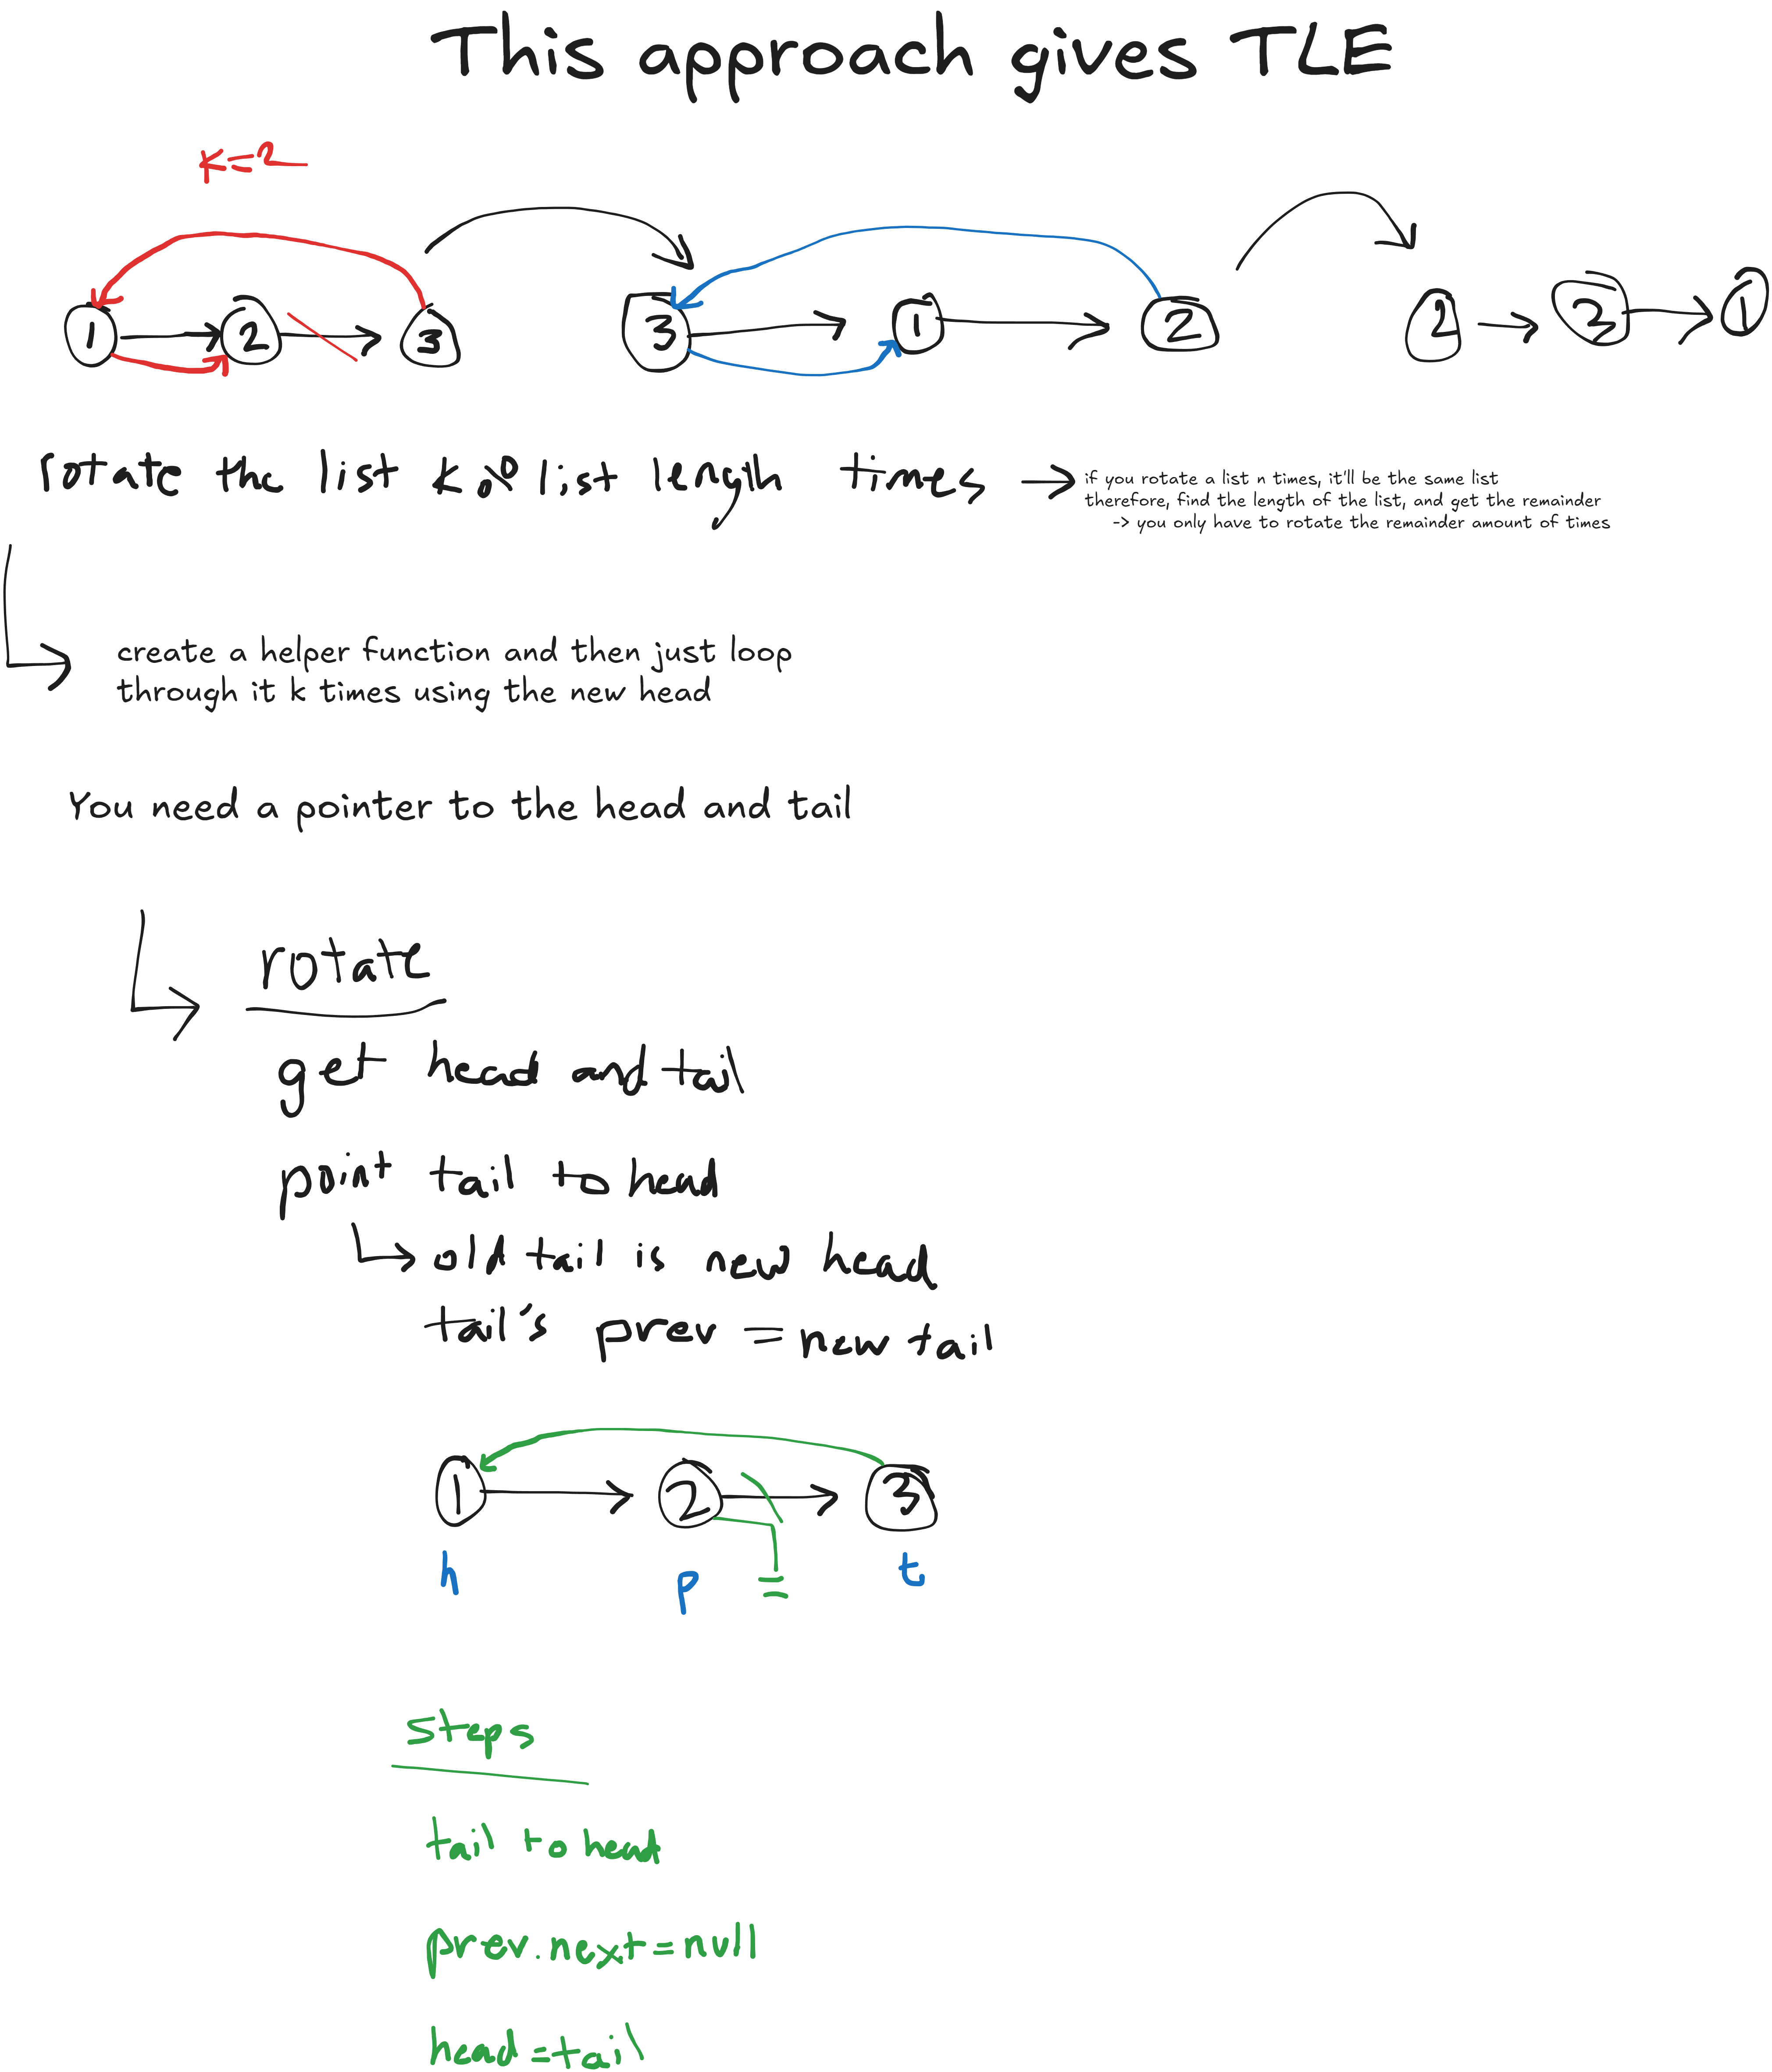 This approach gives TLE
K=2
1 2 3 3 1 2 2 3 1
rotate the list k % list length times
if you rotate a list n times, it'll be the same list
therefore, find the length of the list, and get the remainder
-> you only have to rotate the remainder amount of times
create a helper function and then just loop
through it k times using the new head
You need a pointer to the head and tail
rotate
get head and tail
point tail to head
old tail is new head
tail's prev = new tail
1 2 3
h p t
steps
tail to head
prev.next=null
head=tail